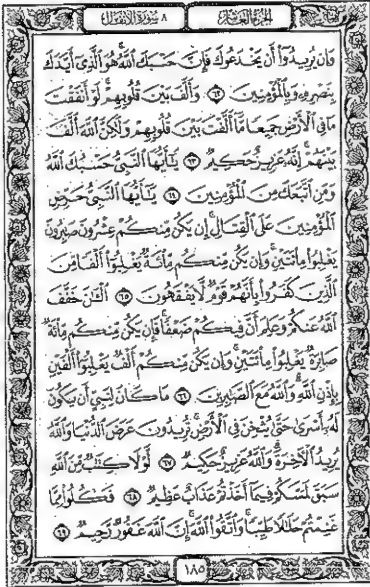 الجزء العاشر ٨ سورة الأنفال
وَإِن يُرِيدُوٓاْ أَن يَخۡدَعُوكَ فَإِنَّ حَسۡبَكَ ٱللَّهُۚ هُوَ ٱلَّذِيٓ أَيَّدَكَ
بِنَصۡرِهِۦ وَبِٱلۡمُؤۡمِنِينَ ٦٢ وَأَلَّفَ بَيۡنَ قُلُوبِهِمۡۚ لَوۡ أَنفَقۡتَ
مَا فِي ٱلۡأَرۡضِ جَمِيعٗا مَّآ أَلَّفۡتَ بَيۡنَ قُلُوبِهِمۡ وَلَٰكِنَّ ٱللَّهَ أَلَّفَ
بَيۡنَهُمۡۚ إِنَّهُۥ عَزِيزٌ حَكِيمٞ ٦٣ يَٰٓأَيُّهَا ٱلنَّبِيُّ حَسۡبُكَ ٱللَّهُ
وَمَنِ ٱتَّبَعَكَ مِنَ ٱلۡمُؤۡمِنِينَ ٦٤ يَٰٓأَيُّهَا ٱلنَّبِيُّ حَرِّضِ
ٱلۡمُؤۡمِنِينَ عَلَى ٱلۡقِتَالِۚ إِن يَكُن مِّنكُمۡ عِشۡرُونَ صَٰبِرُونَ
يَغۡلِبُواْ مِاْئَتَيۡنِۚ وَإِن يَكُن مِّنكُم مِّاْئَةٞ يَغۡلِبُوٓاْ أَلۡفٗا مِّنَ
ٱلَّذِينَ كَفَرُواْ بِأَنَّهُمۡ قَوۡمٞ لَّا يَفۡقَهُونَ ٦٥ ٱلۡـَٰٔنَ خَفَّفَ
ٱللَّهُ عَنكُمۡ وَعَلِمَ أَنَّ فِيكُمۡ ضَعۡفٗاۚ فَإِن يَكُن مِّنكُم مِّاْئَةٞ
صَابِرَةٞ يَغۡلِبُواْ مِاْئَتَيۡنِۚ وَإِن يَكُن مِّنكُمۡ أَلۡفٞ يَغۡلِبُوٓاْ أَلۡفَيۡنِ
بِإِذۡنِ ٱللَّهِۗ وَٱللَّهُ مَعَ ٱلصَّٰبِرِينَ ٦٦ مَا كَانَ لِنَبِيٍّ أَن يَكُونَ
لَهُۥٓ أَسۡرَىٰ حَتَّىٰ يُثۡخِنَ فِي ٱلۡأَرۡضِۚ تُرِيدُونَ عَرَضَ ٱلدُّنۡيَا وَٱللَّهُ
يُرِيدُ ٱلۡأٓخِرَةَۗ وَٱللَّهُ عَزِيزٌ حَكِيمٞ ٦٧ لَّوۡلَا كِتَٰبٞ مِّنَ ٱللَّهِ
سَبَقَ لَمَسَّكُمۡ فِيمَآ أَخَذۡتُمۡ عَذَابٌ عَظِيمٞ ٦٨ فَكُلُواْ مِمَّا
غَنِمۡتُمۡ حَلَٰلٗا طَيِّبٗاۚ وَٱتَّقُواْ ٱللَّهَۚ إِنَّ ٱللَّهَ غَفُورٞ رَّحِيمٞ ٦٩
١٨٥